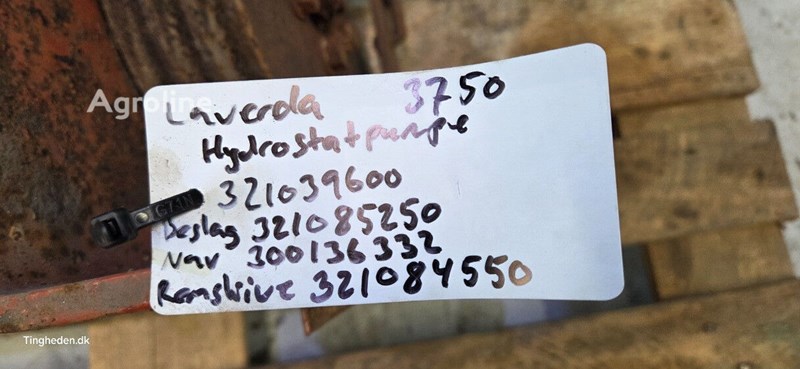 Agroline
Laverda 3750
Hydrostatpumpe
321039600
Beslag 321085250
Nav 300136332
Remskive 321084550
Tingheden.dk